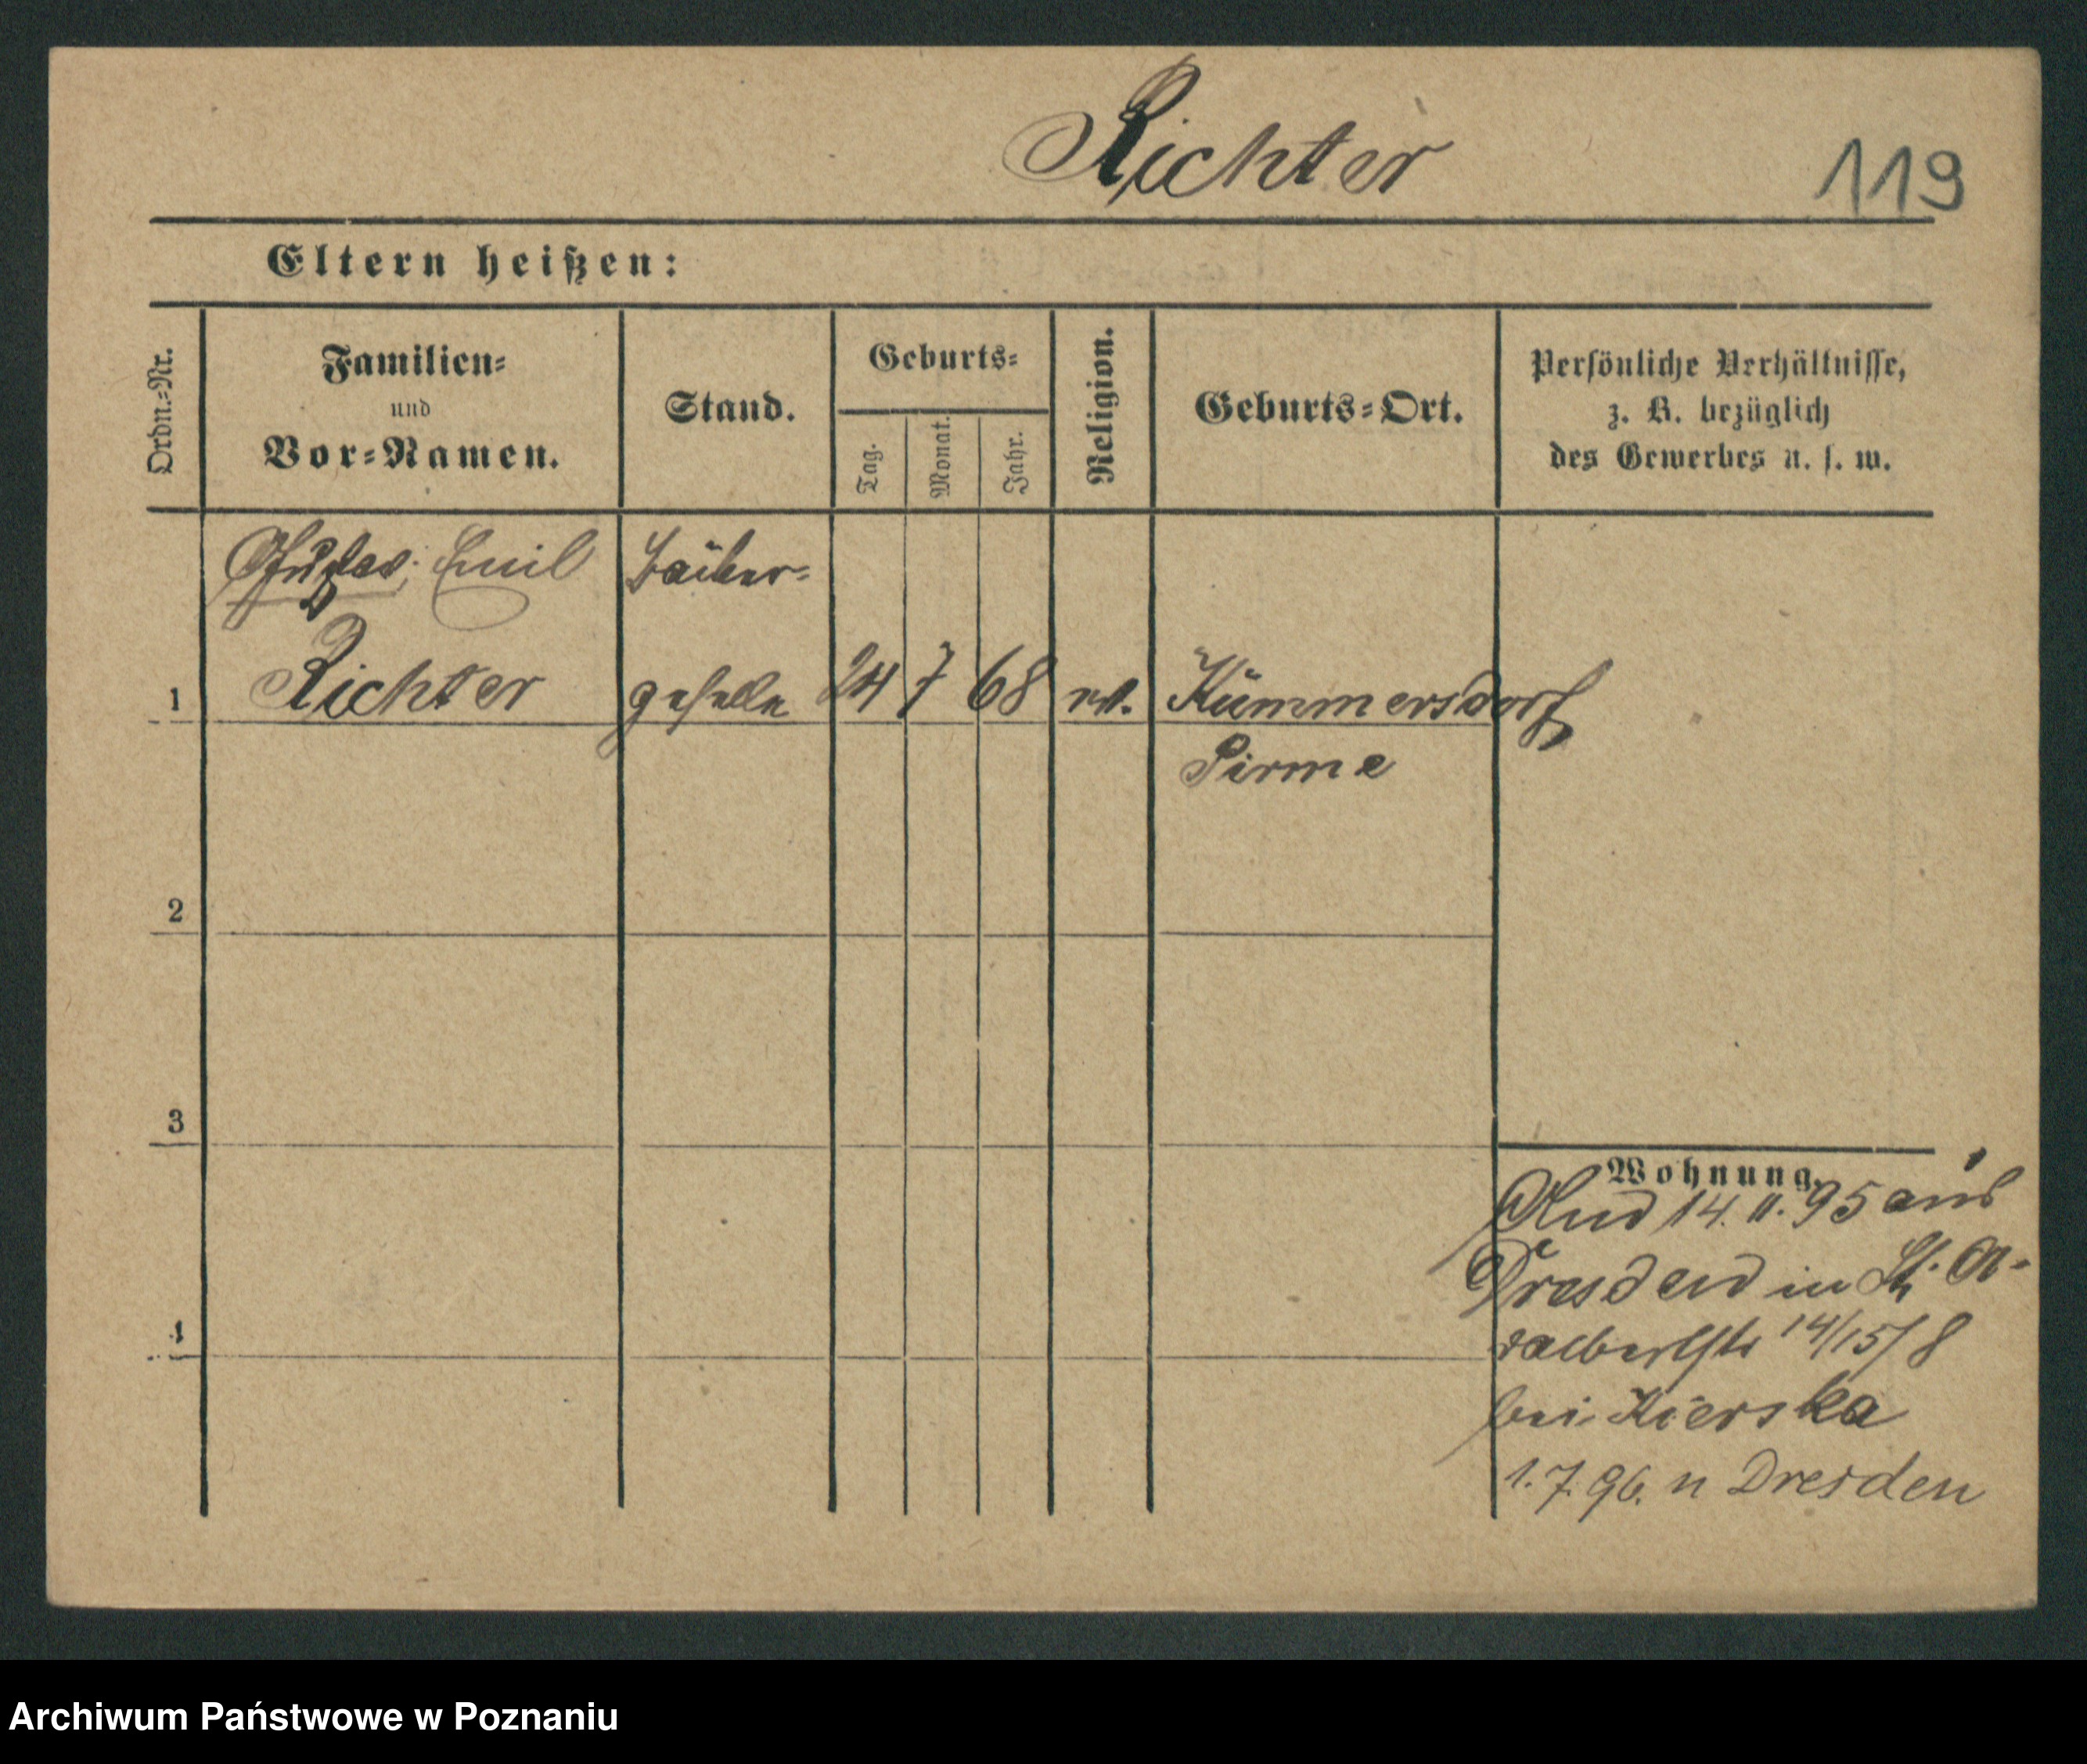 Richter
119
Eltern heißen:
Ordn.=Nr.
Familien=
und
Vor=Namen.
Stand.
Geburts=
Tag.
Monat.
Jahr.
Religion.
Geburts=Ort.
Persönliche Verhältnisse,
z. B. bezüglich
des Gewerbes u. s. w.
Emil
Richter
geselle
24 7 68
Kümmersdorf
Pirme
1
2
3
4
Wohnung.
14. 11. 95 aus
Dresden in St. A-
dalbertstr 14/15/8
bei Kierska
1. 7. 96. n Dresden
Archiwum Państwowe w Poznaniu